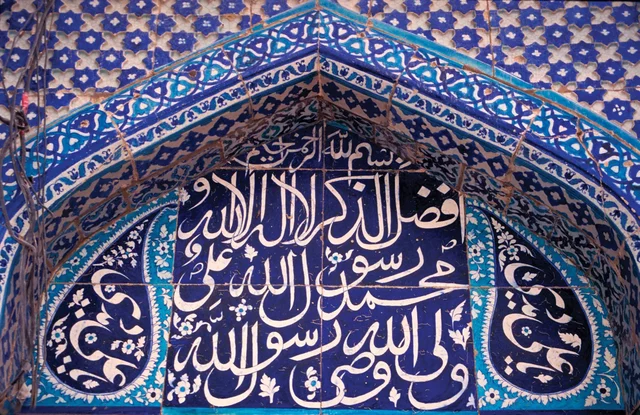 بسم الله الرحمن الرحیم
افضل الذکر لا اله الا الله و
محمد رسول الله علی
ولی الله وصی رسول الله